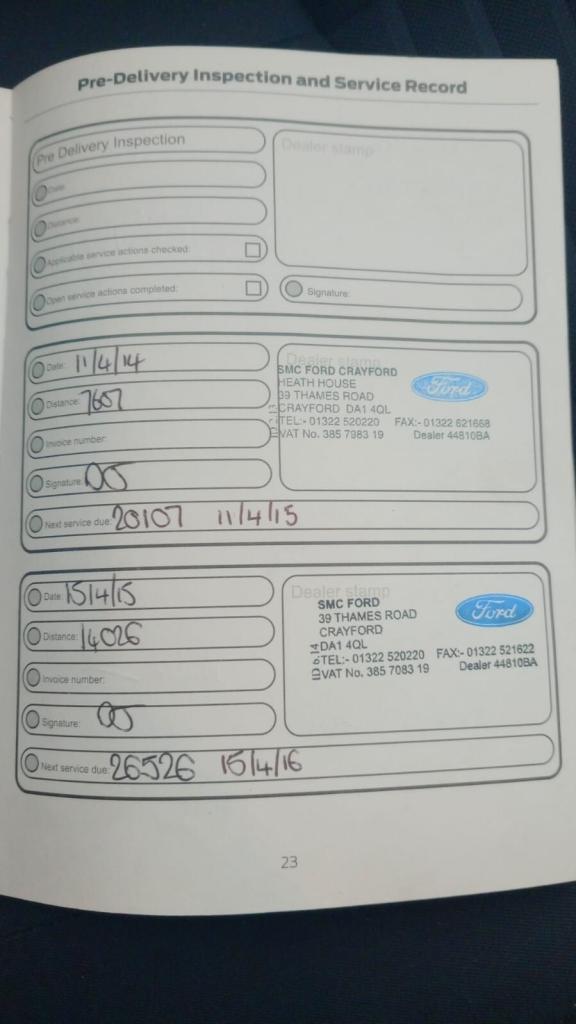 Pre-Delivery Inspection and Service Record
Pre Delivery Inspection
Dealer stamp
Date:
Distance:
Applicable service actions checked:
Open service actions completed:
Signature:
Date: 11/4/14
Distance: 7607
Invoice number:
Signature:
Next service due: 20107 11/4/15
Dealer stamp
SMC FORD CRAYFORD
HEATH HOUSE
39 THAMES ROAD
CRAYFORD DA1 4QL
TEL:- 01322 520220 FAX:- 01322 521668
VAT No. 385 7983 19 Dealer 44810BA
Ford
Date: 15/4/15
Distance: 14026
Invoice number:
Signature:
Next service due: 26526 15/4/16
Dealer stamp
SMC FORD
39 THAMES ROAD
CRAYFORD
DA1 4QL
TEL:- 01322 520220 FAX:- 01322 521622
VAT No. 385 7083 19 Dealer 44810BA
Ford
23